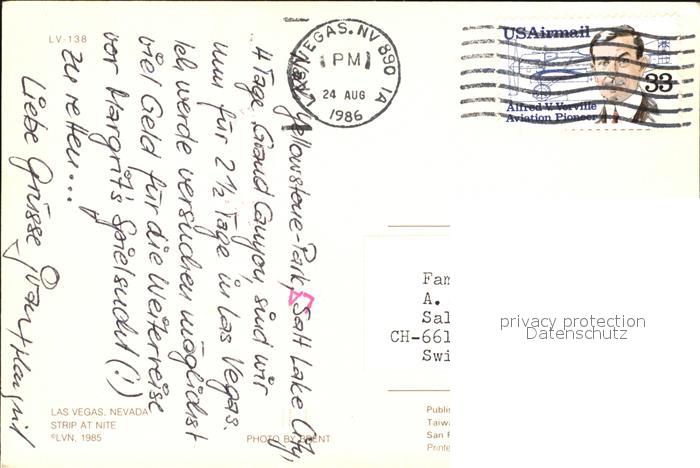 LV-138
LAS VEGAS, NV 890
PM
24 AUG
1986
USAirmail
33
Alfred V. Verville
Aviation Pioneer
Nach Yellowstone-Park, Salt Lake City,
4 Tage Grand Canyon, sind wir
nun für 2 ½ Tage in Las Vegas.
Ich werde versuchen möglichst
viel Geld für die Weiterreise
vor Margrit's Spielsucht (!)
zu retten...
Liebe Grüsse Ivan + Margrit
Fam
A.
Sal
CH-661
Swi
privacy protection
Datenschutz
LAS VEGAS, NEVADA
STRIP AT NITE
©LVN, 1985
PHOTO BY BRENT
Publis
Taiwa
San F
Printe